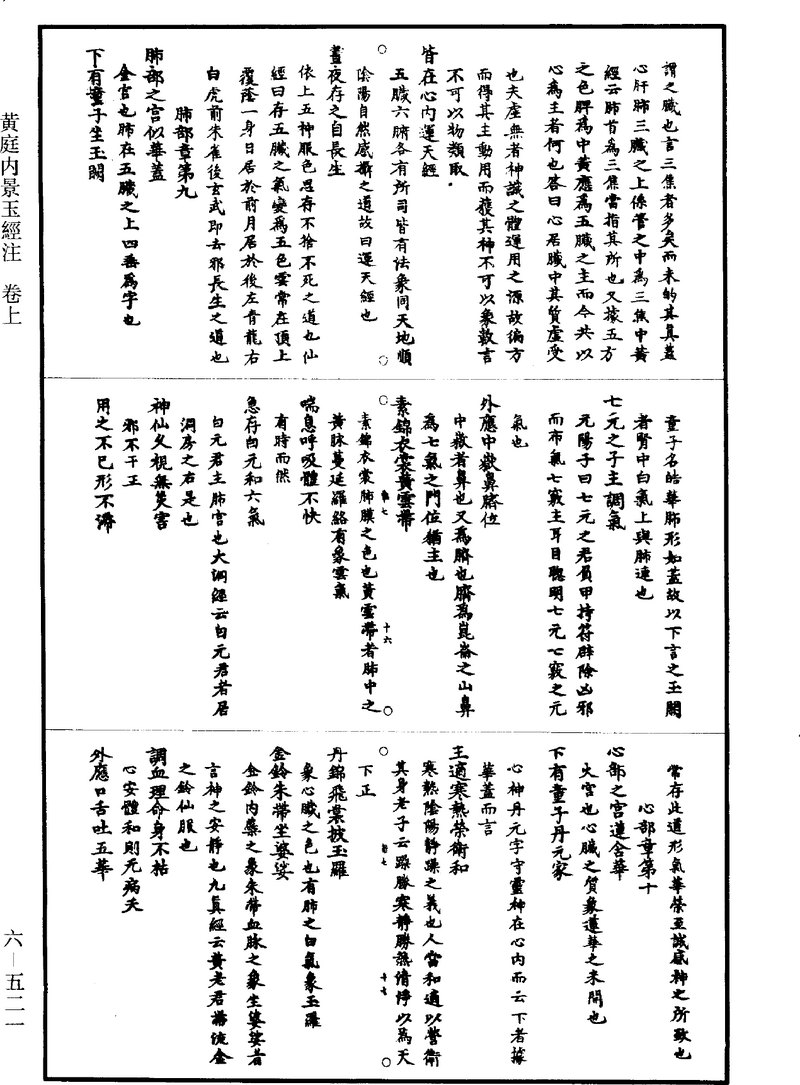 謂之臟也言三焦者多矣而未的其真蓋
心肝肺三臟之上係管之中為三焦中黃
經云肺首為三焦當指其所也又據五方
之色脾為中黃應為五臟之主而今共以
心為主者何也答曰心居臟中其質虛受
也夫虛無者神識之體運用之源故徧方
而得其主動用而獲其神不可以象數言
不可以物類取
皆在心內運天經
五臟六腑各有所司皆有法象同天地順
陰陽自然感攝之道故曰運天經也
晝夜存之自長生
依上五神服色思存不捨不死之道也仙
經曰存五臟之氣變為五色雲常在頂上
覆蔭一身日居於前月居於後左青龍右
白虎前朱雀後玄武即去邪長生之道也
肺部章第九
肺部之宮似華蓋
金宮也肺在五臟之上四垂為宇也
下有童子坐玉闕
童子名皓華肺形如蓋故以下言之玉闕
者腎中白氣上與肺連也
七元之子主調氣
元陽子曰七元之君負甲持符辟除凶邪
而布氣七竅主耳目聰明七元七竅之元
氣也
外應中嶽鼻臍位
中嶽者鼻也又為臍也臍為崑崙之山鼻
為七氣之門位猶主也
素錦衣裳黃雲帶
素錦衣裳肺膜之色也黃雲帶者肺中之
黃脉蔓延羅絡有象雲氣
喘息呼吸體不快
有時而然
急存白元和六氣
白元君主肺宮也大洞經云白元君者居
洞房之右是也
神仙久視無災害
邪不干正
用之不已形不滯
常存此道形氣華榮至誠感神之所致也
心部章第十
心部之宮蓮含華
火宮也心臟之質象蓮華之未開也
下有童子丹元家
心神丹元字守靈神在心內而云下者據
華蓋而言
主適寒熱榮衛和
寒熱陰陽靜躁之義也人當和適以營衛
其身老子云躁勝寒靜勝熱清淨以為天
下正
丹錦飛裳披玉羅
象心臟之色也有肺之白氣象玉羅
金鈴朱帶坐婆娑
金鈴內藥之象朱帶血脉之象坐婆娑者
言神之安靜也九真經云黃老君帶流金
之鈴仙服也
調血理命身不枯
心安體和則无病夭
外應口舌吐五華
十六
十七
黃庭内景玉經注　卷上
六—五二一